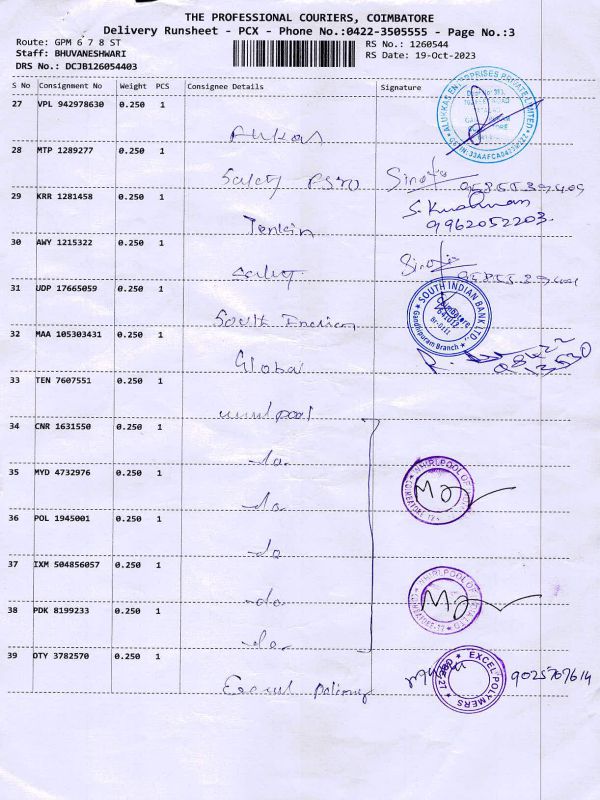 THE PROFESSIONAL COURIERS, COIMBATORE
Delivery Runsheet - PCX - Phone No.:0422-3505555 - Page No.:3
Route: GPM 6 7 8 ST RS No.: 1260544
Staff: BHUVANESHWARI RS Date: 19-Oct-2023
DRS No.: DCJB126054403
S No Consignment No Weight PCS Consignee Details Signature
27 VPL 942978630 0.250 1
ALUKKAS ENTERPRISES PRIVATE LIMITED
28 MTP 1289277 0.250 1
Safety
29 KRR 1281458 0.250 1
9962052203
30 AWY 1215322 0.250 1
31 UDP 17665059 0.250 1
South Indian
SOUTH INDIAN BANK LTD.
Gandhipuram Branch
32 MAA 105303431 0.250 1
Global
33 TEN 7607551 0.250 1
34 CNR 1631550 0.250 1
-do-
35 MYD 4732976 0.250 1
-do-
WHIRLPOOL OF
COIMBATORE-12
36 POL 1945001 0.250 1
-do-
37 IXM 504856057 0.250 1
-do-
WHIRLPOOL OF
38 PDK 8199233 0.250 1
-do-
39 OTY 3782570 0.250 1
EXCEL POLYMERS
9025707614